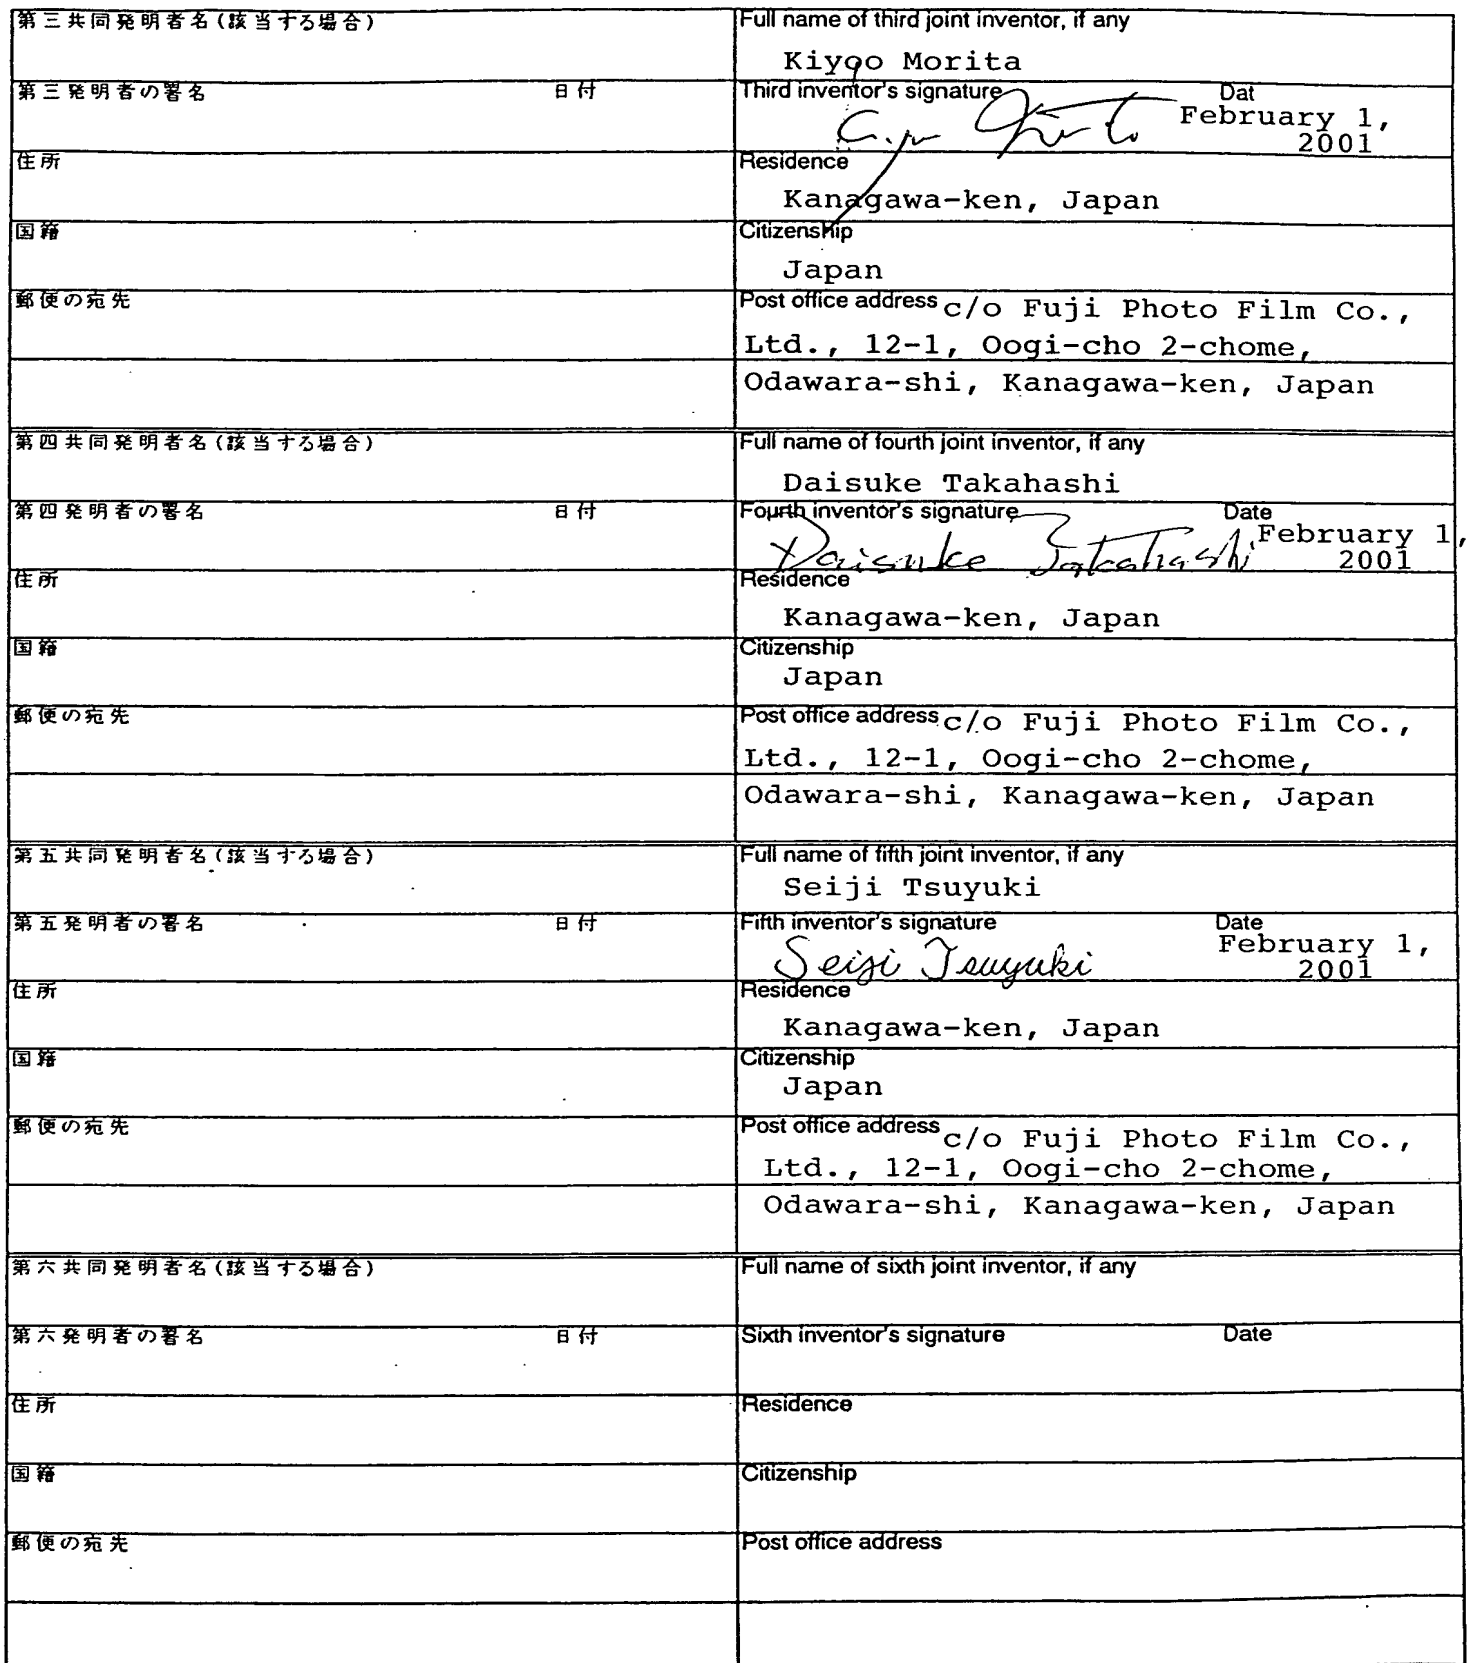 第三共同発明者名(該当する場合)
Full name of third joint inventor, if any
Kiyoo Morita
第三発明者の署名 日付
Third inventor's signature Dat
February 1,
2001
住所
Residence
Kanagawa-ken, Japan
国籍
Citizenship
Japan
郵便の宛先
Post office address c/o Fuji Photo Film Co.,
Ltd., 12-1, Oogi-cho 2-chome,
Odawara-shi, Kanagawa-ken, Japan
第四共同発明者名(該当する場合)
Full name of fourth joint inventor, if any
Daisuke Takahashi
第四発明者の署名 日付
Fourth inventor's signature Date
Daisuke Takahashi February 1,
2001
住所
Residence
Kanagawa-ken, Japan
国籍
Citizenship
Japan
郵便の宛先
Post office address c/o Fuji Photo Film Co.,
Ltd., 12-1, Oogi-cho 2-chome,
Odawara-shi, Kanagawa-ken, Japan
第五共同発明者名(該当する場合)
Full name of fifth joint inventor, if any
Seiji Tsuyuki
第五発明者の署名 日付
Fifth inventor's signature Date
Seiji Tsuyuki February 1,
2001
住所
Residence
Kanagawa-ken, Japan
国籍
Citizenship
Japan
郵便の宛先
Post office address c/o Fuji Photo Film Co.,
Ltd., 12-1, Oogi-cho 2-chome,
Odawara-shi, Kanagawa-ken, Japan
第六共同発明者名(該当する場合)
Full name of sixth joint inventor, if any
第六発明者の署名 日付
Sixth inventor's signature Date
住所
Residence
国籍
Citizenship
郵便の宛先
Post office address